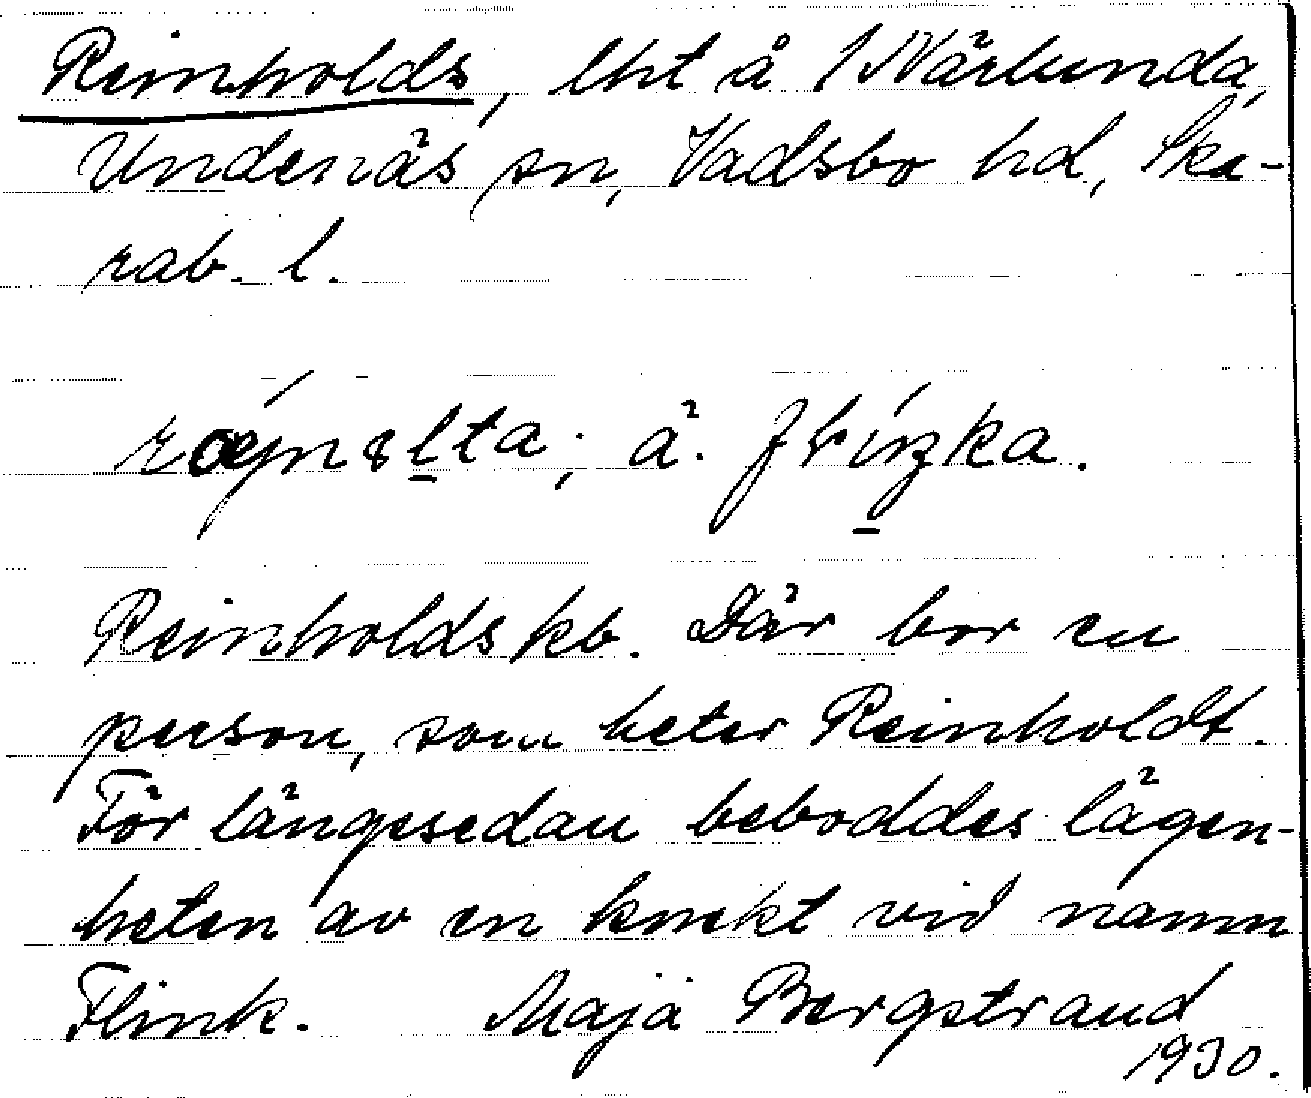 Reinholds, lht å 1 Närlunda,
Undenäs sn, Vadsbo hd, Ska-
rab. l.
Reinholds kb. Där bor en
person, som heter Reinholdt.
För längesedan beboddes lägen-
heten av en knekt vid namn
Flink. Maja Bergstrand
1930.